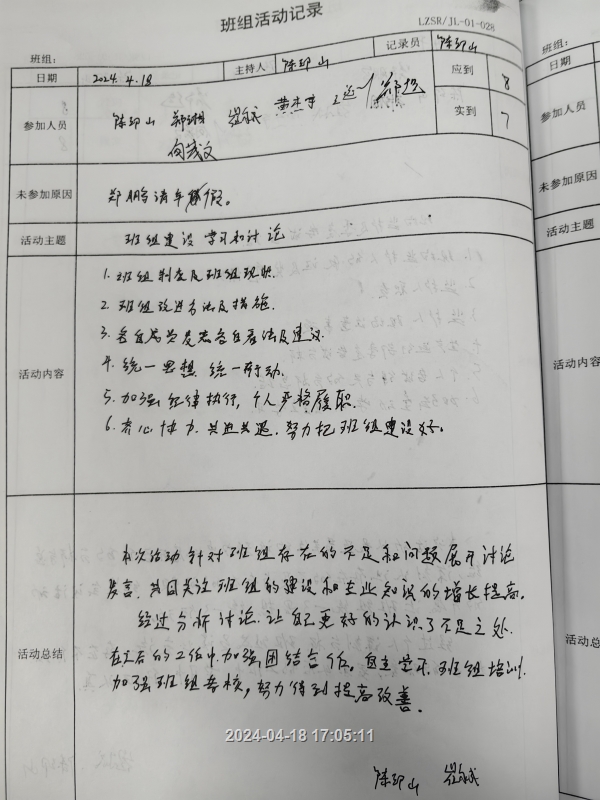 班组活动记录
LZSR/JL-01-028
班组:
日期 2024.4.18 主持人 陈印山 记录员 陈印山 应到 8
参加人员 陈印山 实到 7
未参加原因 郑鹏请年休假。
活动主题 班组建设 学习和讨论
活动内容
1. 班组制度及班组现状.
2. 班组改进方法及措施.
3. 各自成员发表各自看法及建议.
4. 统一思想 统一行动.
5. 加强纪律执行, 个人严格履职.
6. 齐心协力. 共进共退. 努力把班组建设好。
活动总结
本次活动针对班组存在的不足和问题展开讨论
发言. 共同关注班组的建设和专业知识的增长提高.
经过分析讨论. 让自己更好的认识了不足之处.
在今后的工作中. 加强团结合作. 自主学习. 班组培训.
加强班组考核, 努力得到提高改善。
2024-04-18 17:05:11
陈印山
班组:
日期
参加人员
未参加原因
活动主题
活动内容
活动总